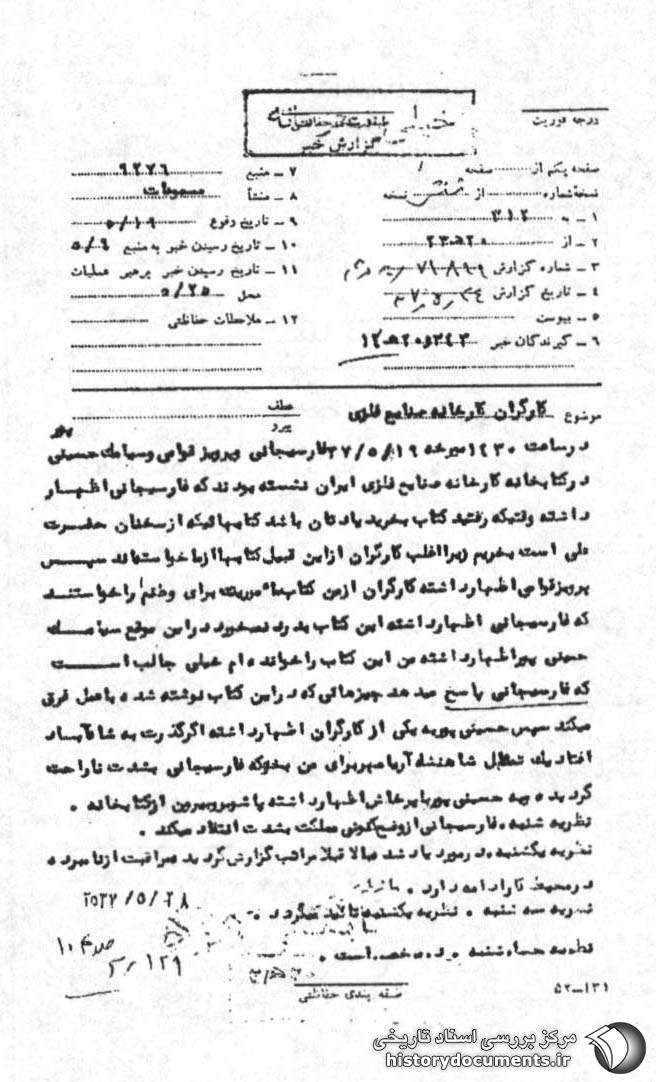 درجه فوریت
خیلی محرمانه
طبقه بندی حفاظتی
گزارش خبر
صفحه یکم از صفحه
نسخه شماره از نسخه
۱ ـ به ۳۱۲
۲ ـ از ۲۰ھ۲۳
۳ ـ شماره گزارش
۴ ـ تاریخ گزارش
۵ ـ پیوست
۶ ـ گیرندگان خبر
۷ ـ منبع ۶۲۷۶
۸ ـ منشأ مسموعات
۹ ـ تاریخ وقوع ۵/۱۹
۱۰ ـ تاریخ رسیدن خبر به منبع ۵/۹
۱۱ ـ تاریخ رسیدن خبر برهبر عملیات
محل ۵/۲۵
۱۲ ـ ملاحظات حفاظتی
موضوع کارگران کارخانه صنایع فلزی
عطف
پیرو
پور
درساعت ۱۴۳۰ مورخه ۳۷/۵/۱۹ فارسیجانی وپرویز قوامی وسیامك حسینی
درکتابخانه کارخانه صنایع فلزی ایران نشسته بودند که فارسیجانی اظهار
داشته وقتیکه رفتید کتاب بخرید یادتان باشد کتابهائیکه از سخنان حضرت
علی است بخریم زیرا اغلب کارگران از این قبیل کتابها از ما خواسته‌اند سپس
پرویز قوامی اظهارداشته کارگران از من کتاب مأموریت برای وطنم را خواستند
که فارسیجانی اظهارداشته این کتاب بدرد نمیخورد دراین موقع سیامك
حسینی پور اظهارداشته من این کتاب را خوانده ام خیلی جالب است
که فارسیجانی پاسخ میدهد چیزهائی که دراین کتاب نوشته شده باعمل فرق
میکند سپس حسینی پور به یکی از کارگران اظهارداشته اگر گذرت به شاه‌آباد
افتاد یك تمثال شاهنشاه آریامهر برای من بخر که فارسیجانی بشدت ناراحت
گردیده و به حسینی پور با پرخاش اظهارداشته پاشو برو بیرون از کتابخانه .
نظریه شنبه . فارسیجانی از وضع کنونی مملکت بشدت انتقاد میکند .
نظریه یکشنبه . درمورد یاد شده بالا قبلا مراتب گزارش گردید مراقبت از نامبرده
درمحیط کار ادامه دارد .
نظریه سه شنبه . نظریه یکشنبه تائید میگردد .
نظریه چهارشنبه .
۲۵۳۷/۵/۲۸
طبقه بندی حفاظتی
۵۲ــ۱۳۱
مرکز بررسی اسناد تاریخی
historydocuments.ir